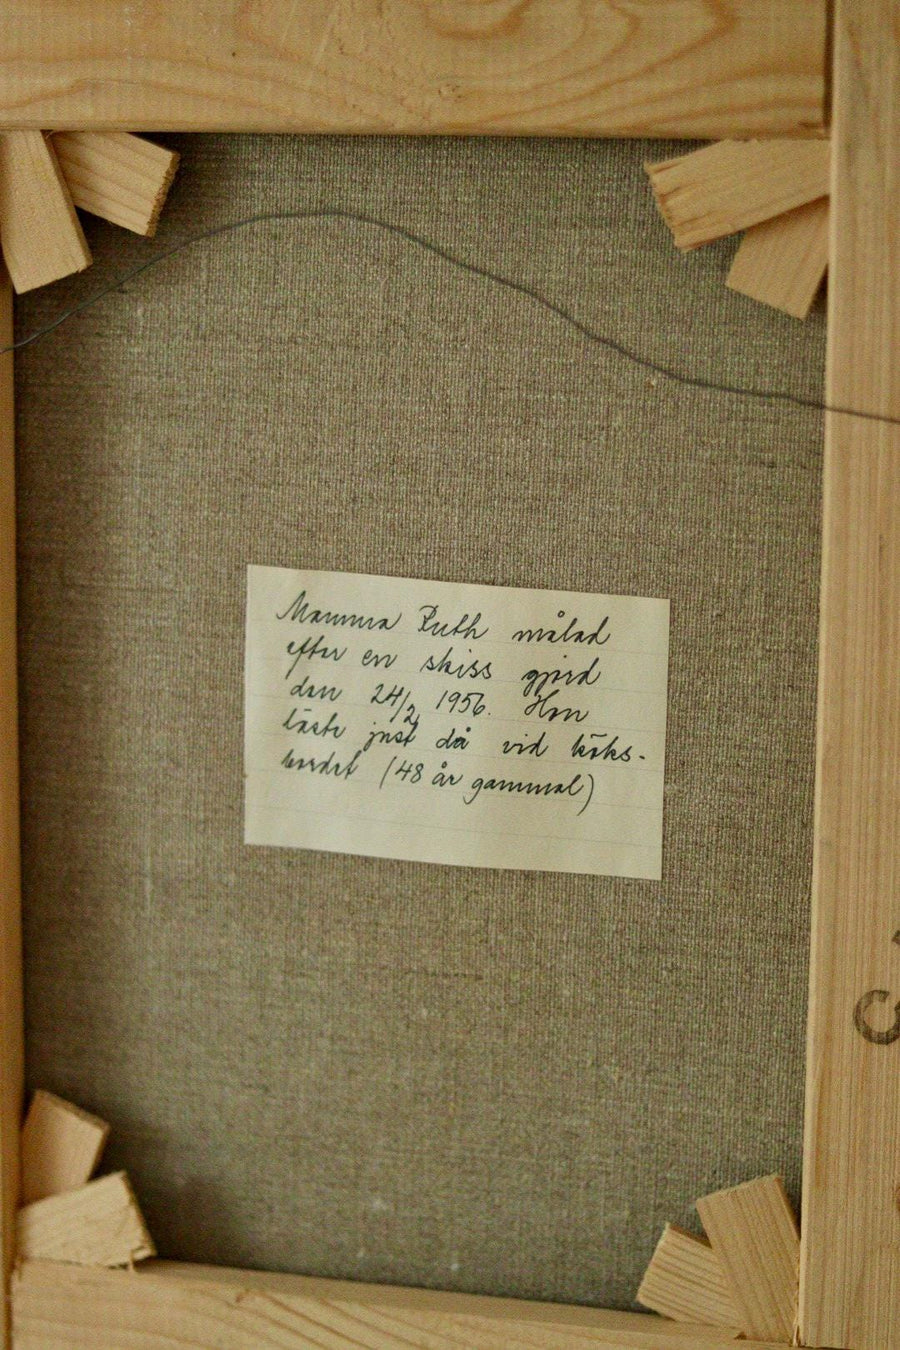 Mamma Ruth målad
efter en skiss gjord
den 24/2 1956. Hon
läste just då vid köks-
bordet (48 år gammal)